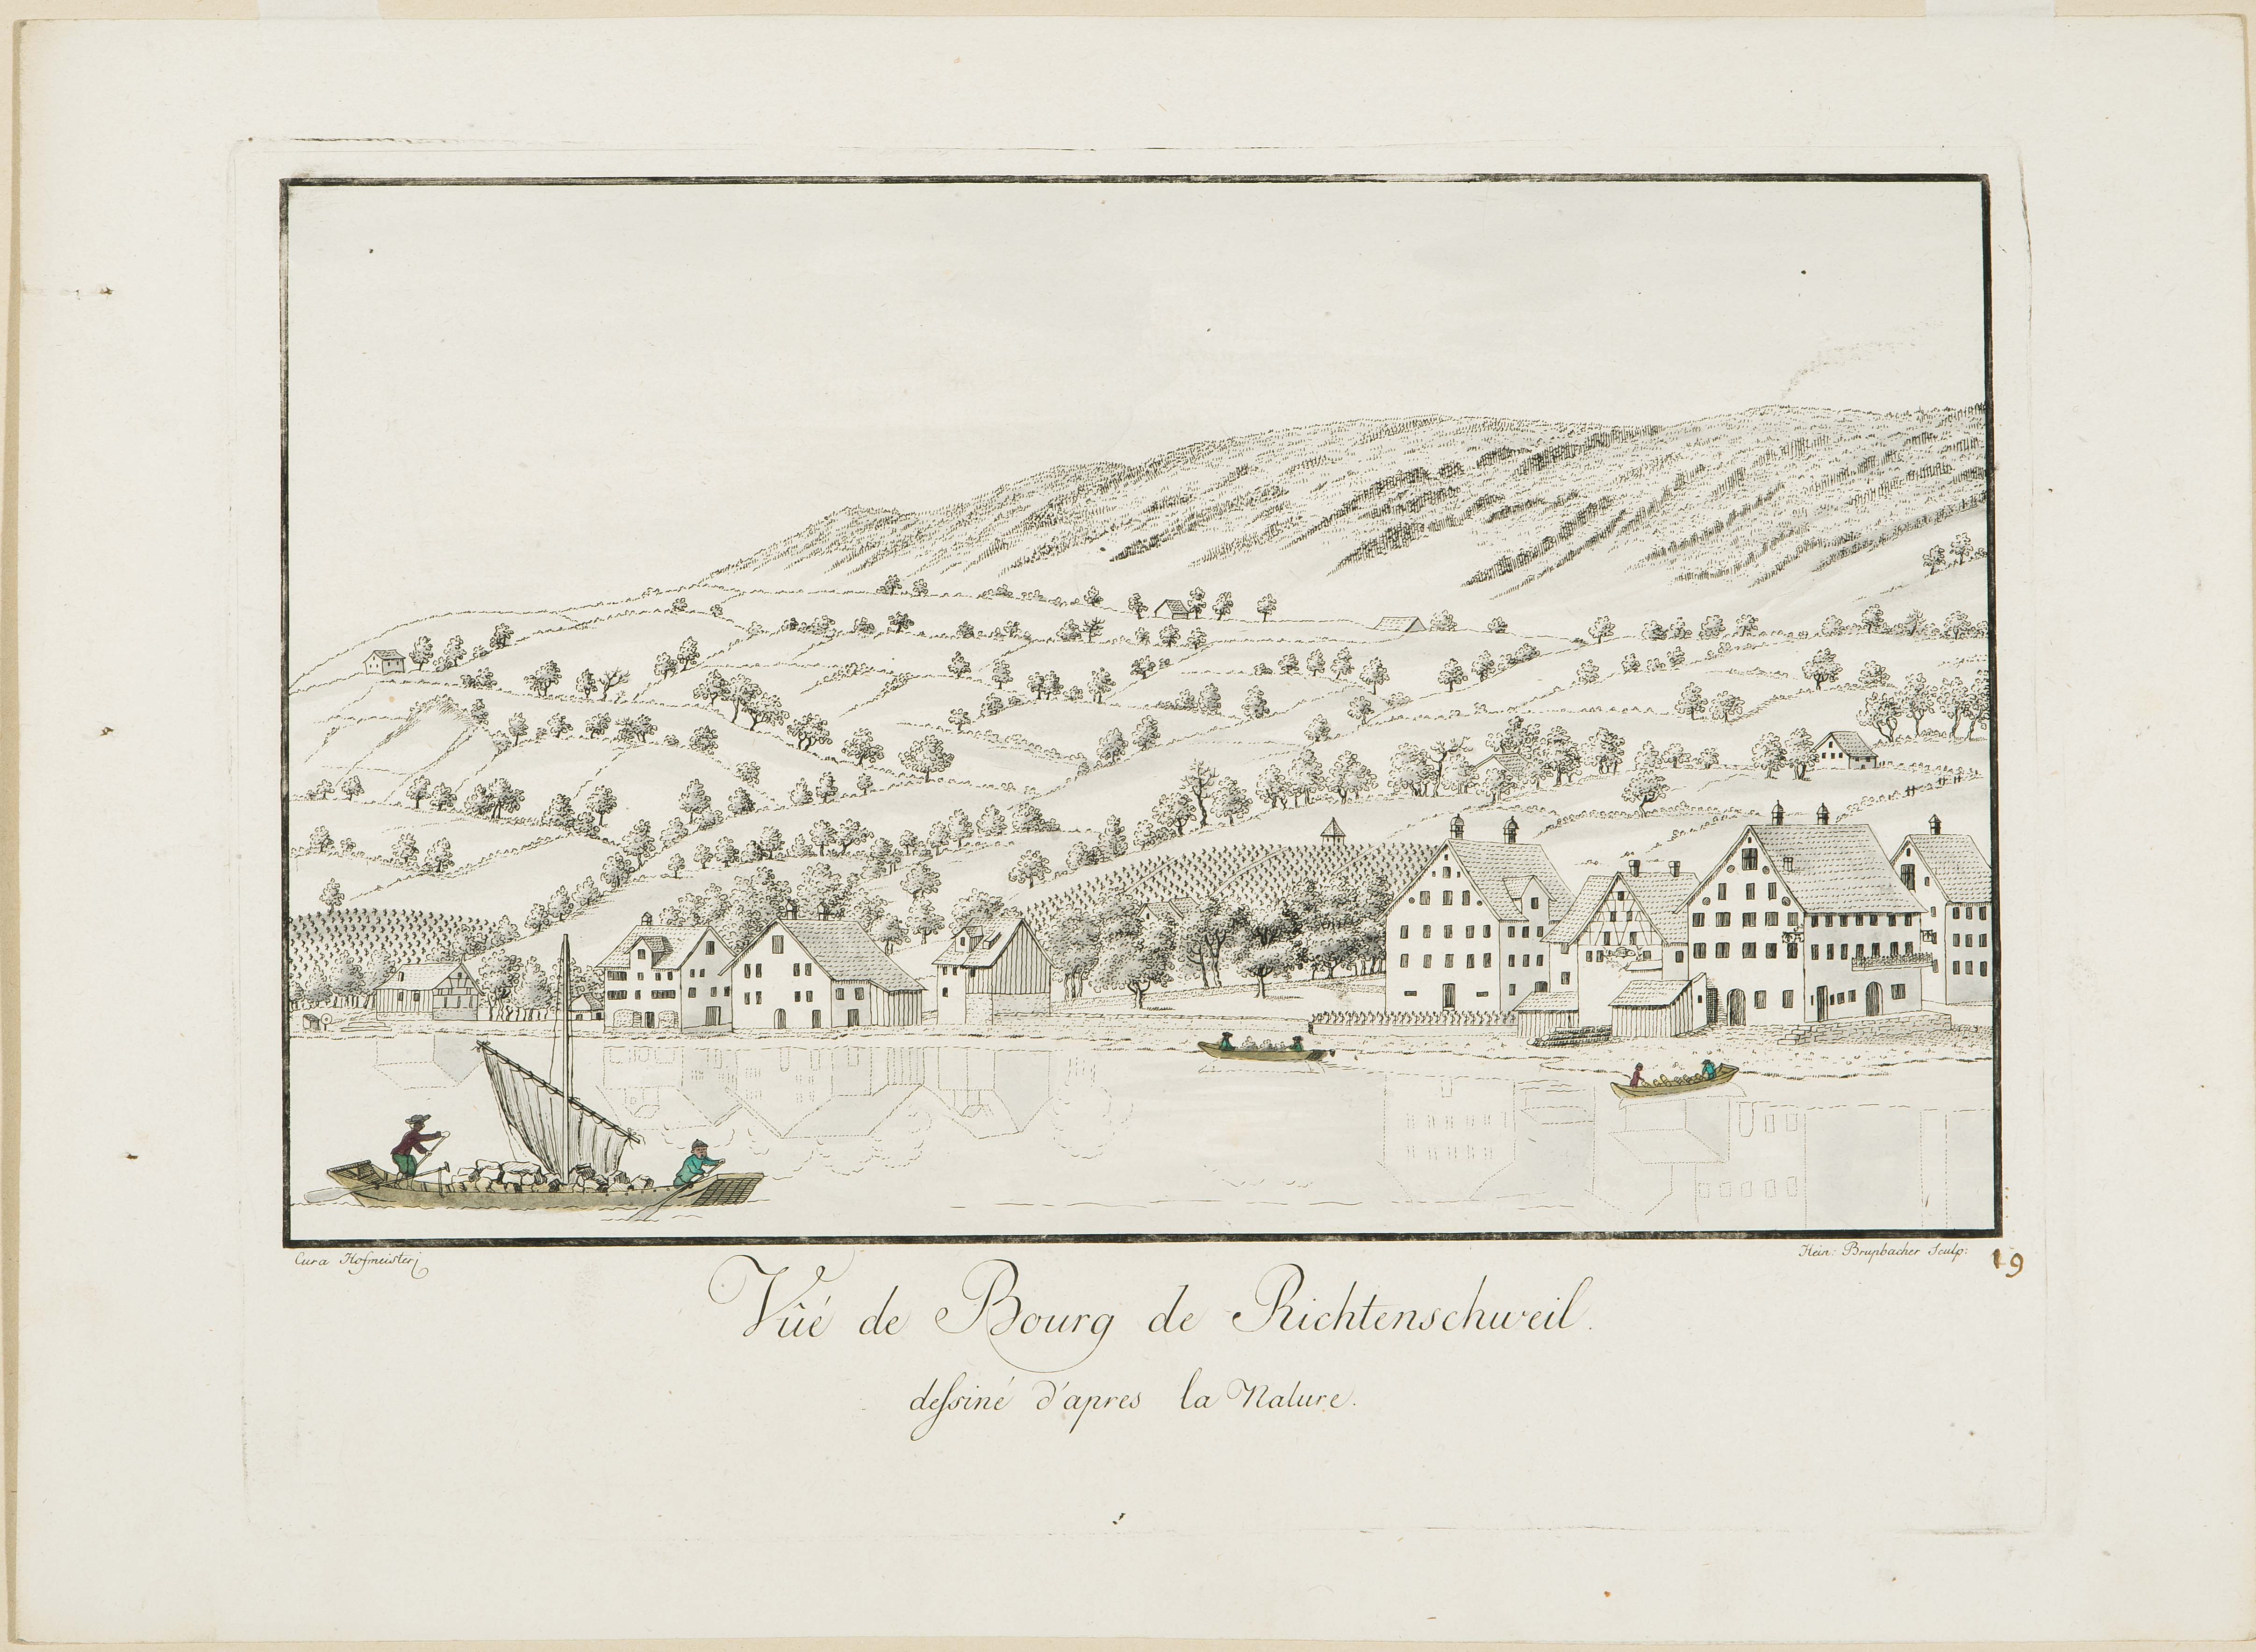 Cura Hofmeisteri
Hein: Brupbacher Sculp:
19
Vûé de Bourg de Richtenschweil.
deſsiné d'apres la Nature.